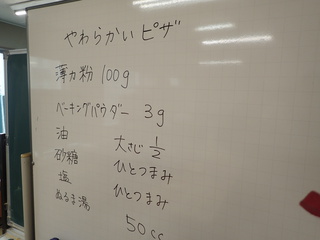 やわらかいピザ
薄力粉 100g
ベーキングパウダー 3g
油 大さじ 1/2
砂糖 ひとつまみ
塩 ひとつまみ
ぬるま湯 50cc